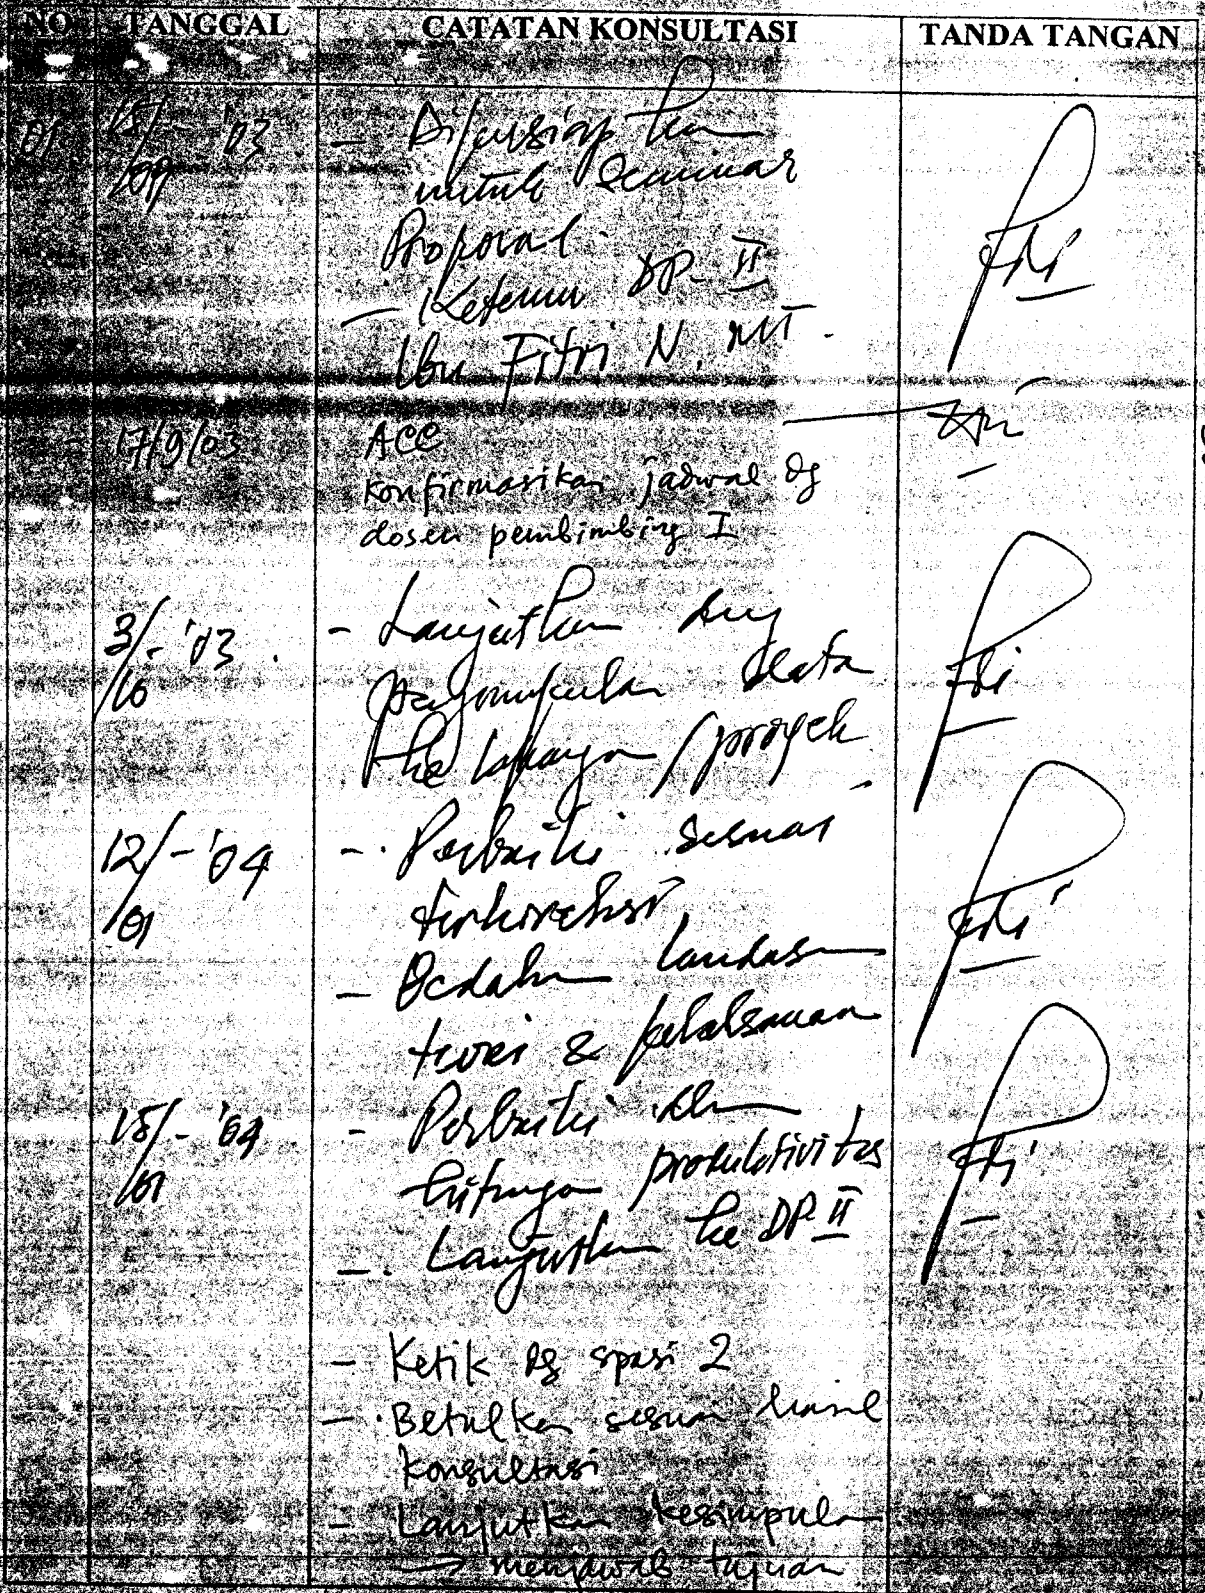 NO TANGGAL CATATAN KONSULTASI TANDA TANGAN
01 15/09 - '03 - Dipersiapkan
untuk Seminar
Proposal.
- Ketemu DP-II
Ibu Fitri N, MT.
17/9/03 ACC
konfirmasikan jadwal dg
dosen pembimbing I
3/10 - '03. - Lanjutkan dng
pengumpulan data
ke lapangan / proyek
12/01 - '04 - Perbaiki sesuai
terkoreksi
- landasan
teori & pelaksanaan
15/01 - '04 - Perbaiki dlm
hitungan produktivitas
- Lanjutkan ke DP-II
- Ketik dg spasi 2
- Betulkan sesuai hasil
konsultasi
- Lanjutkan kesimpulan
→ menjawab tujuan